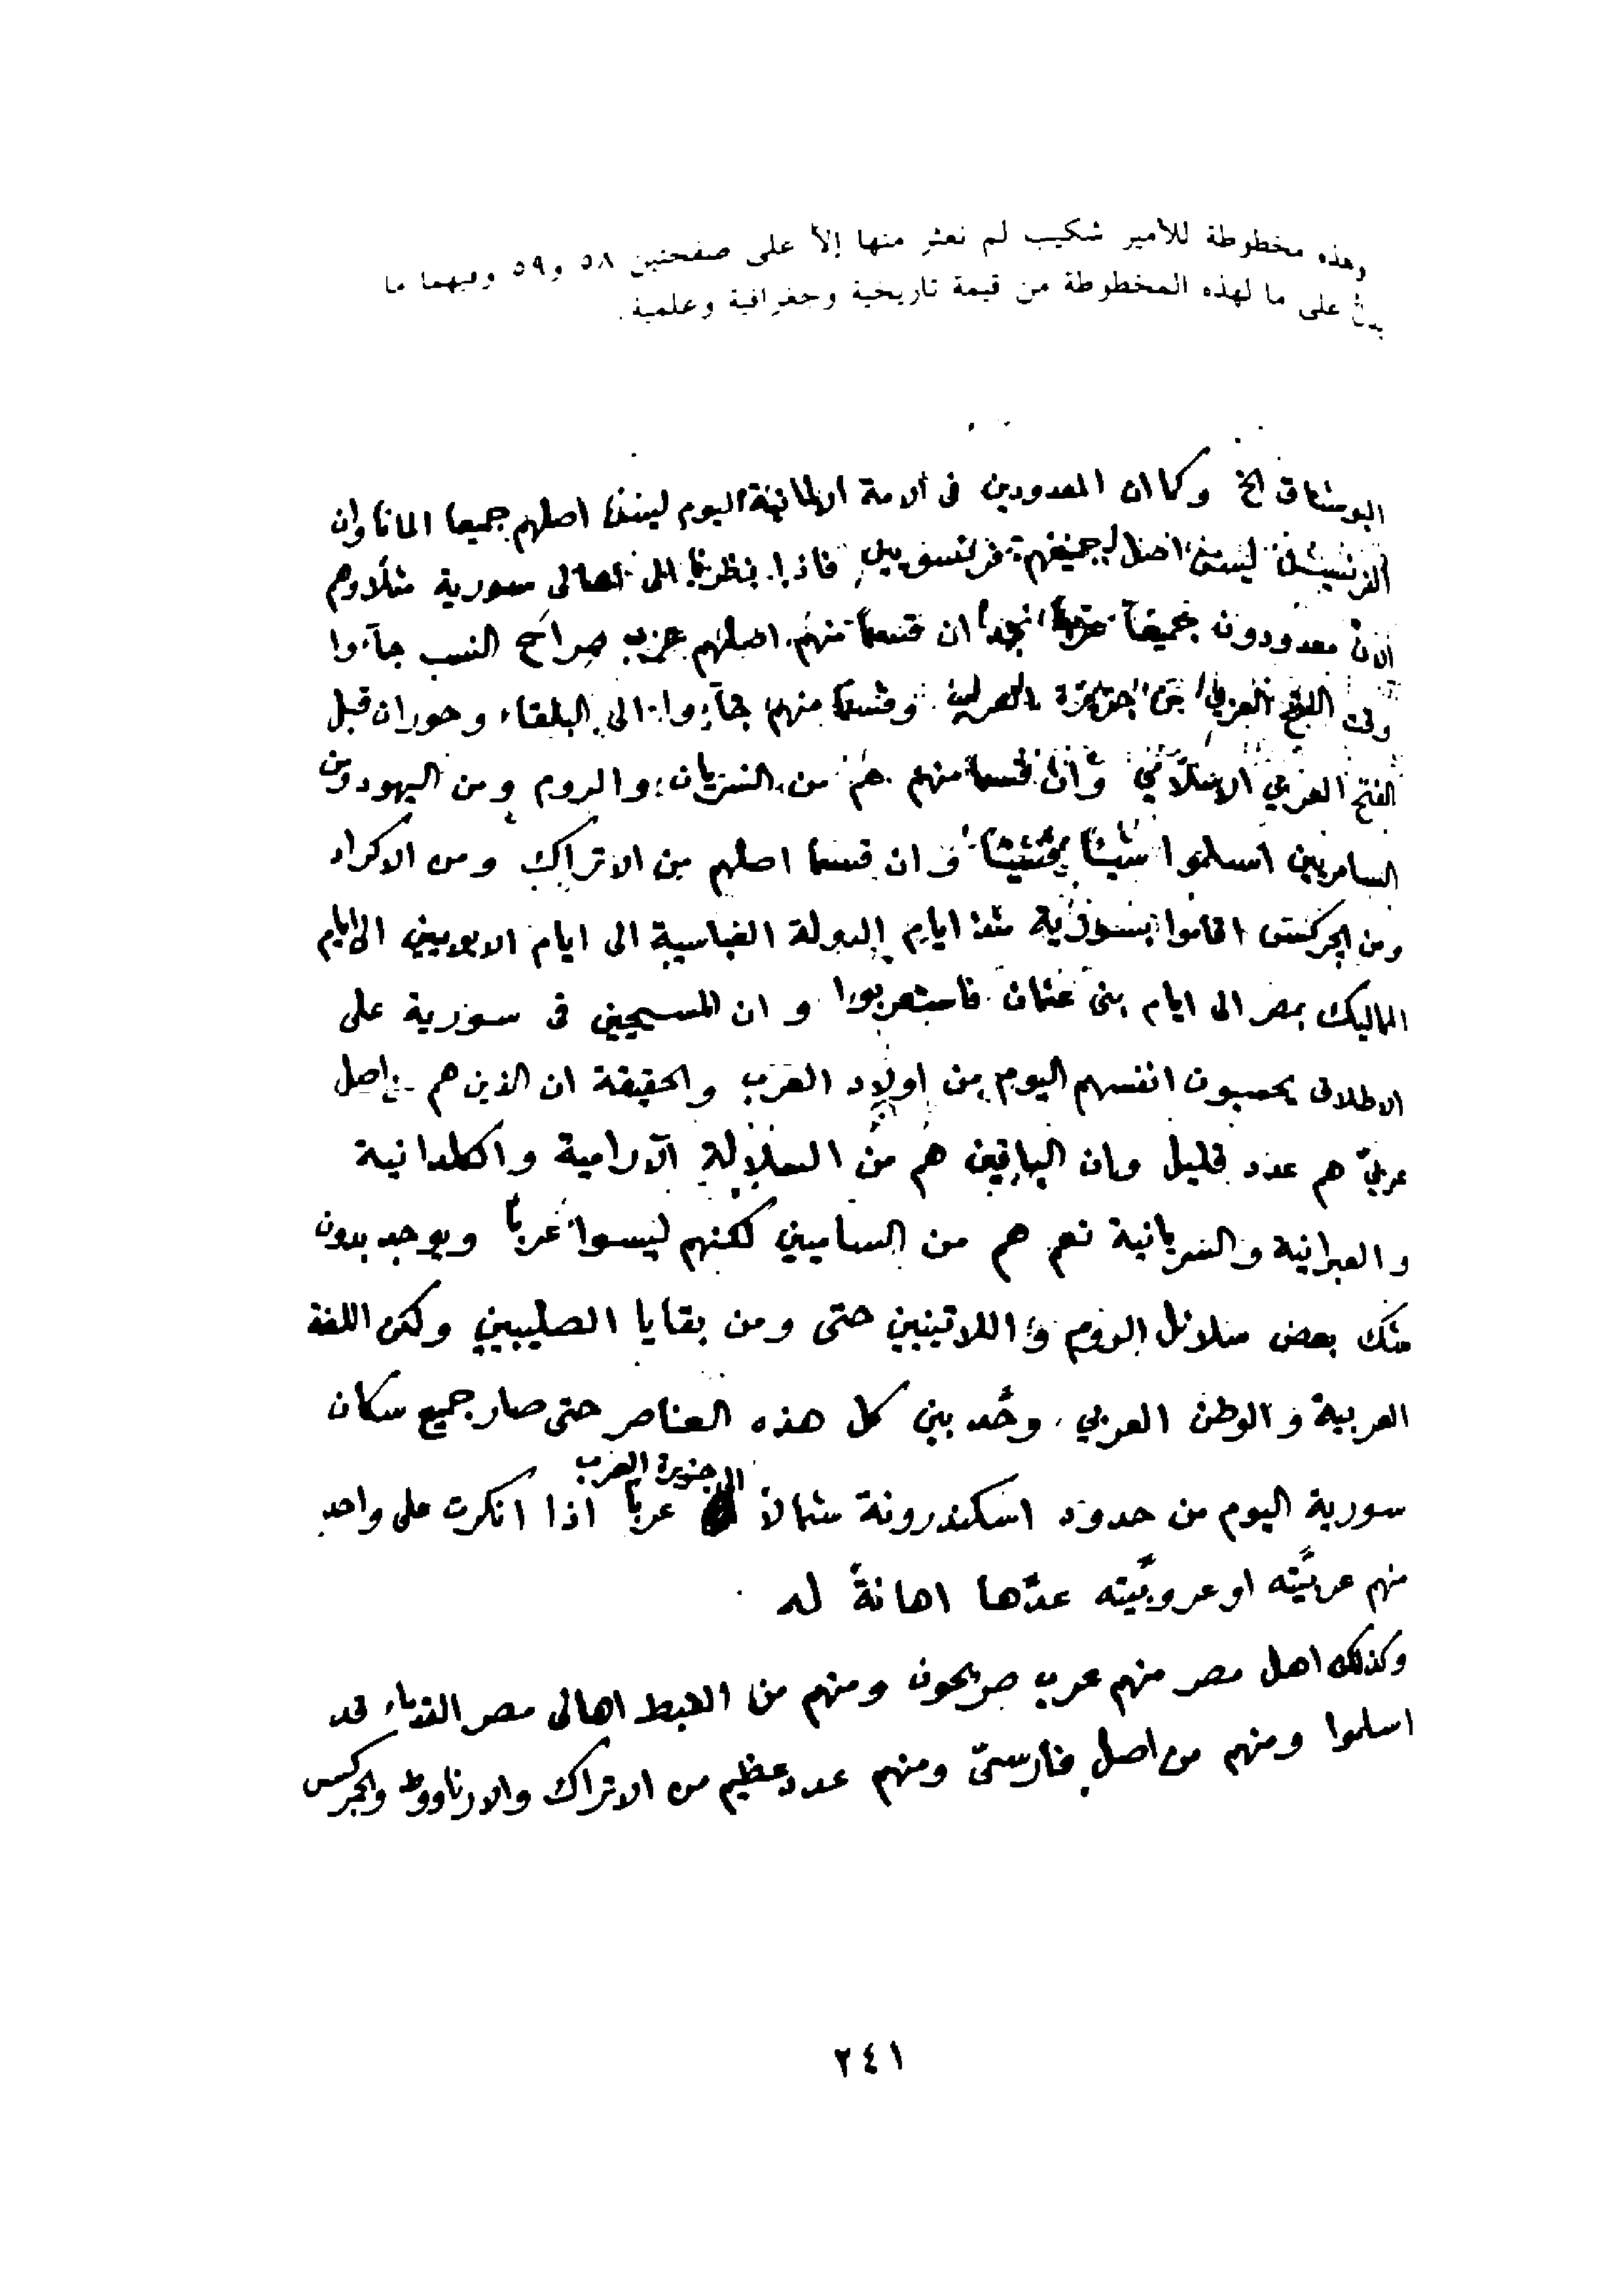 وهذه مخطوطة للأمير شكيب لم نعثر منها إلاّ على صفحتين ٥٨ و٥٩ وفيهما ما
يدلّ على ما لهذه المخطوطة من قيمة تاريخية وجغرافية وعلمية.
البوشناق الخ وكما ان المعدودين فى الامة الالمانية اليوم ليسوا اصلهم جميعا المانا وان
الفرنسيس ليس اصل جميعهم فرنسويين فاذا نظرنا الى اهالى سورية مثلا وهم
الآن معدودون جميعاً عرباً نجد ان قسماً منهم اصلهم عرب صراح النسب جآءوا
وقت الفتح العربي من جزيرة العرب وقسماً منهم جآءوا الى البلقاء وحوران قبل
الفتح العربي الاسلامي وأن قسماً منهم هم من السريان والروم ومن اليهود ومن
السامريين اسلموا شيئاً فشيئاً وان قسما اصلهم من الاتراك ومن الاكراد
ومن الجركس اقاموا بسورية منذ ايام الدولة العباسية الى ايام الايوبيين الى ايام
المماليك بمصر الى ايام بنى عثمان فاستعربوا وان المسيحيين فى سورية على
الاطلاق يحسبون انفسهم اليوم من اولاد العرب والحقيقة ان الذين هم من اصل
عربيّ هم عدد قليل وان الباقين هم من السلالة الآرامية والكلدانية
والعبرانية والسريانية نعم هم من الساميين لكنهم ليسوا عرباً ويوجد بدون
شك بعض سلائل الروم واللاتينيين حتى ومن بقايا الصليبيين ولكن اللغة
العربية والوطن العربي وحَّد بين كل هذه العناصر حتى صار جميع سكان
سورية اليوم من حدود اسكندرونة شمالاً الى جزيرة العرب عرباً اذا انكرت على واحد
منهم عربيَّته او عروبيَّته عدَّها اهانةً له
وكذلك اهل مصر منهم عرب صريحون ومنهم من القبط اهالى مصر القدماء قد
اسلموا ومنهم من اصل فارسىّ ومنهم عدد عظيم من الاتراك والارناووط والجركس
٢٤١